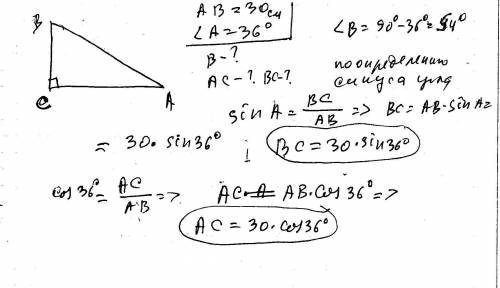 B
C
A
AB = 30 см
∠A = 36°
B - ?
AC - ? BC - ?
∠B = 90° - 36° = 54°
по определению
синуса угла
sin A = BC/AB => BC = AB · sin A =
= 30 · sin 36° ; BC = 30 · sin 36°
cos 36° = AC/AB => AC = AB · cos 36° =>
AC = 30 · cos 36°